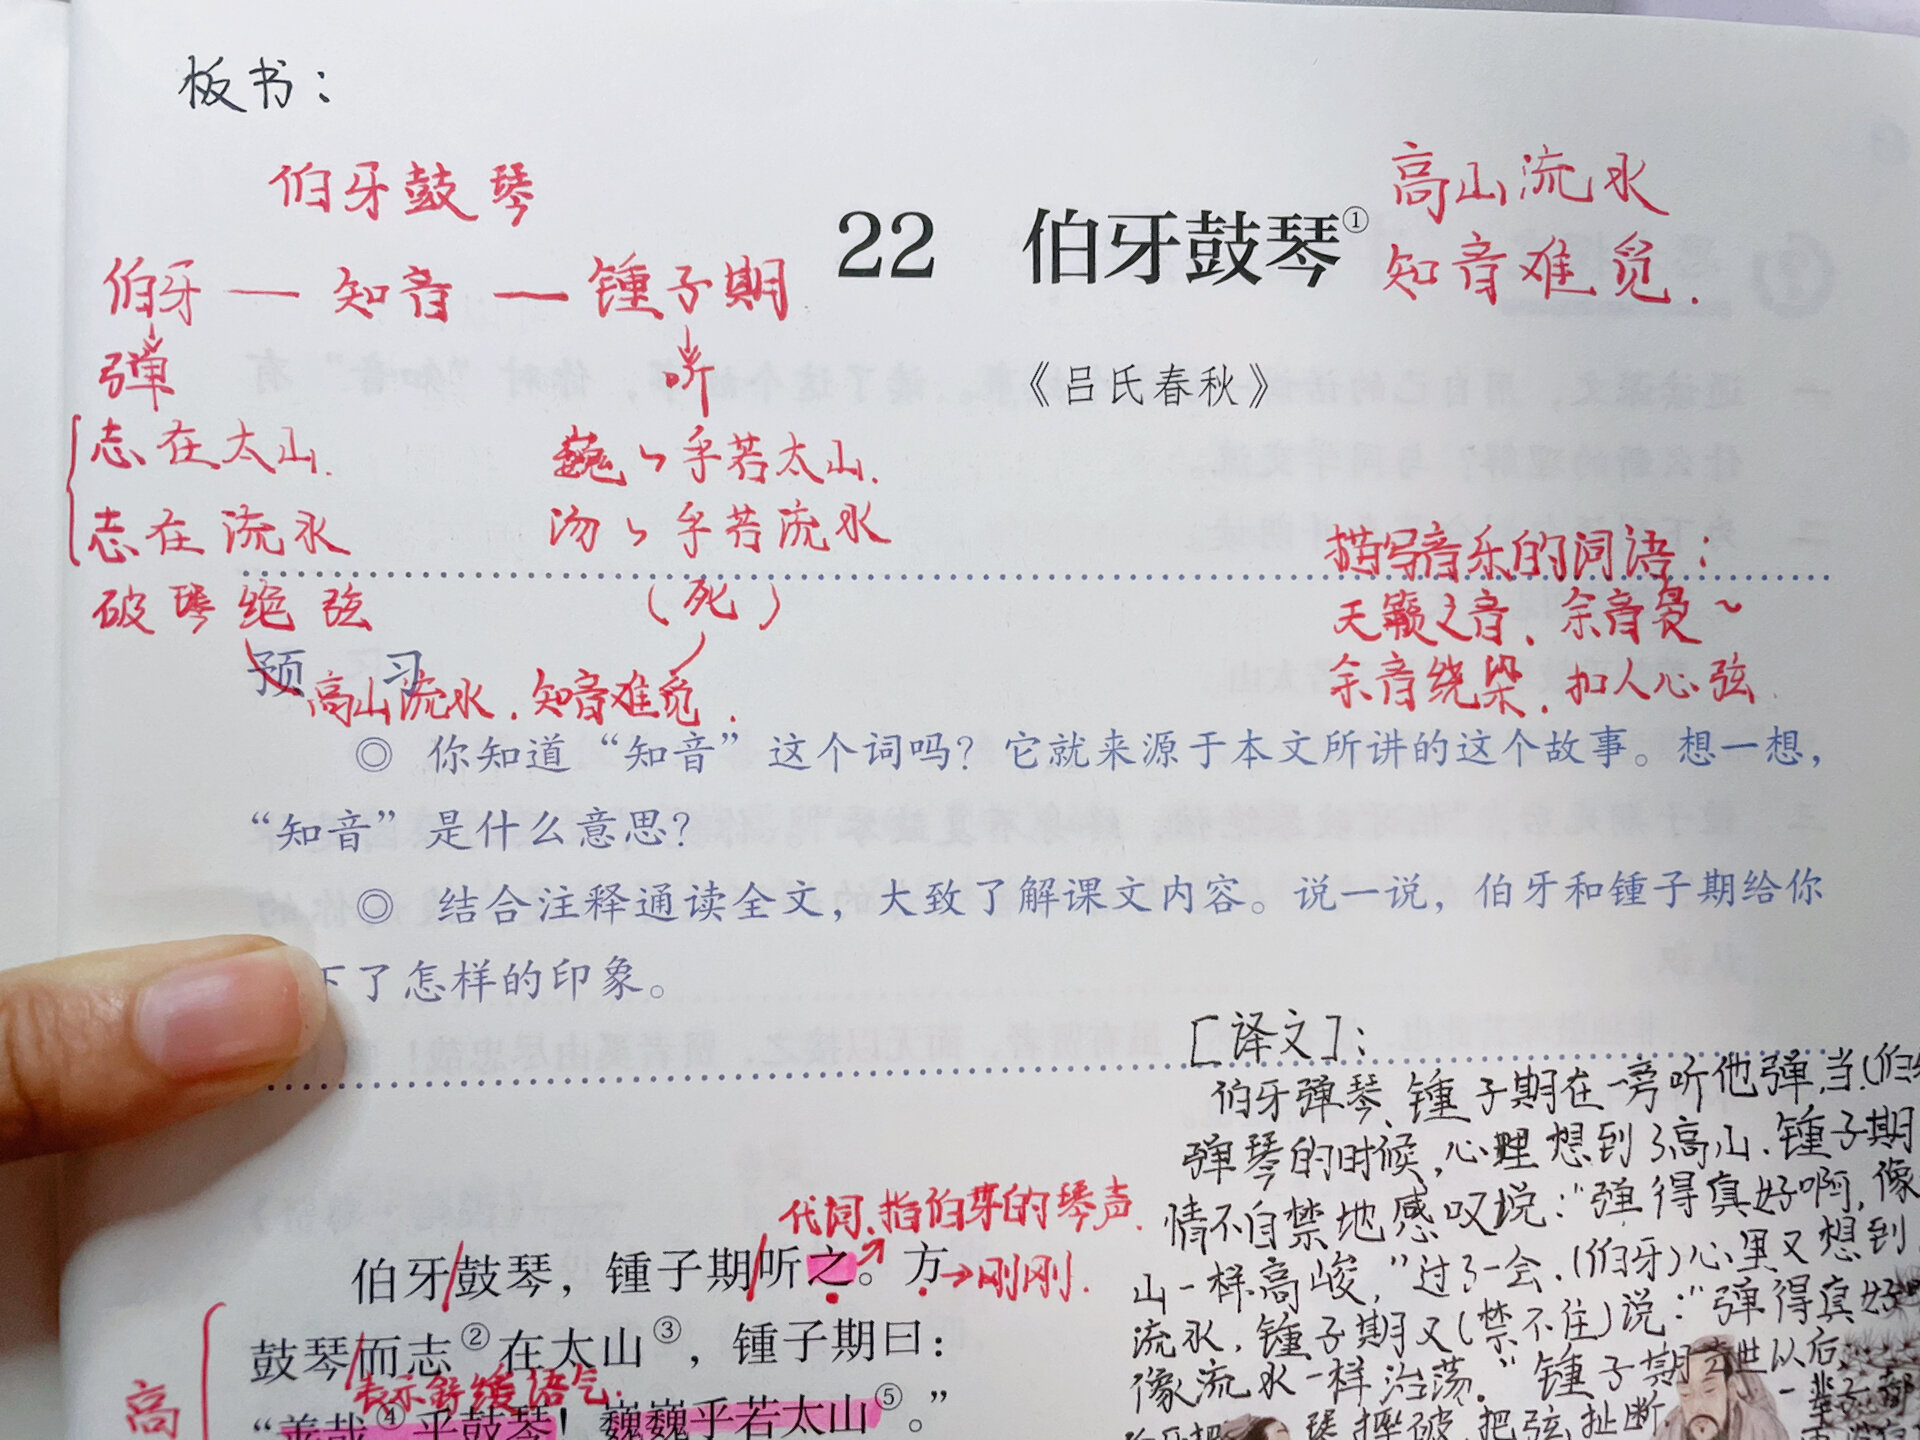 板书：
伯牙鼓琴
伯牙 — 知音 — 锺子期
弹
听
志在太山.
巍巍乎若太山.
志在流水
汤汤乎若流水
破琴绝弦
（死）
高山流水.知音难觅.
22 伯牙鼓琴①
高山流水
知音难觅.
《吕氏春秋》
描写音乐的词语：
天籁之音、余音袅~
余音绕梁、扣人心弦.
预 习
◎ 你知道“知音”这个词吗？它就来源于本文所讲的这个故事。想一想，
“知音”是什么意思？
◎ 结合注释通读全文，大致了解课文内容。说一说，伯牙和锺子期给你
下了怎样的印象。
[译文]：
伯牙弹琴、锺子期在一旁听他弹,当(伯
弹琴的时候,心里想到了高山.锺子期
情不自禁地感叹说:“弹得真好啊,像
山一样高峻,”过了一会.(伯牙)心里又想到
流水,锺子期又(禁不住)说:“弹得真好
像流水一样浩荡.”锺子期去世以后
琴摔破,把弦扯断.
一辈子都
代词.指伯牙的琴声.
伯牙/鼓琴，锺子期/听之。方→刚刚.
鼓琴/而志②在太山③，锺子期曰：
表示舒缓语气.
“善哉④乎鼓琴！巍巍乎若太山⑤。”
高